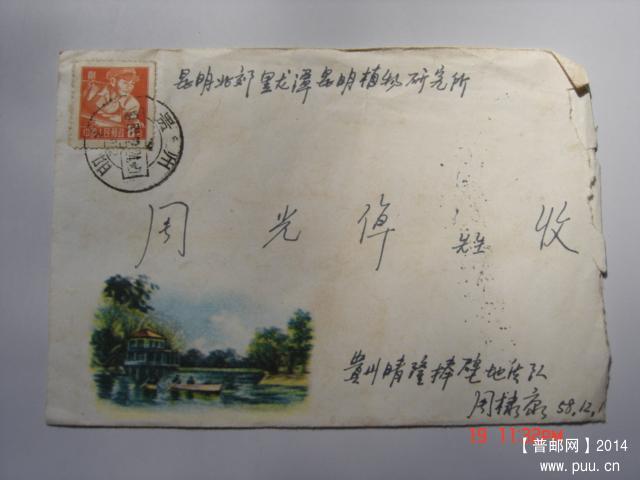 昆明北郊黑龙潭昆明植物研究所
中国人民邮政 8
贵州
周光倬 先生 收
貴州晴隆捧碰地质队
周棣康 58.12.1
19 11:32PM
【普邮网】2014
www.puu.cn